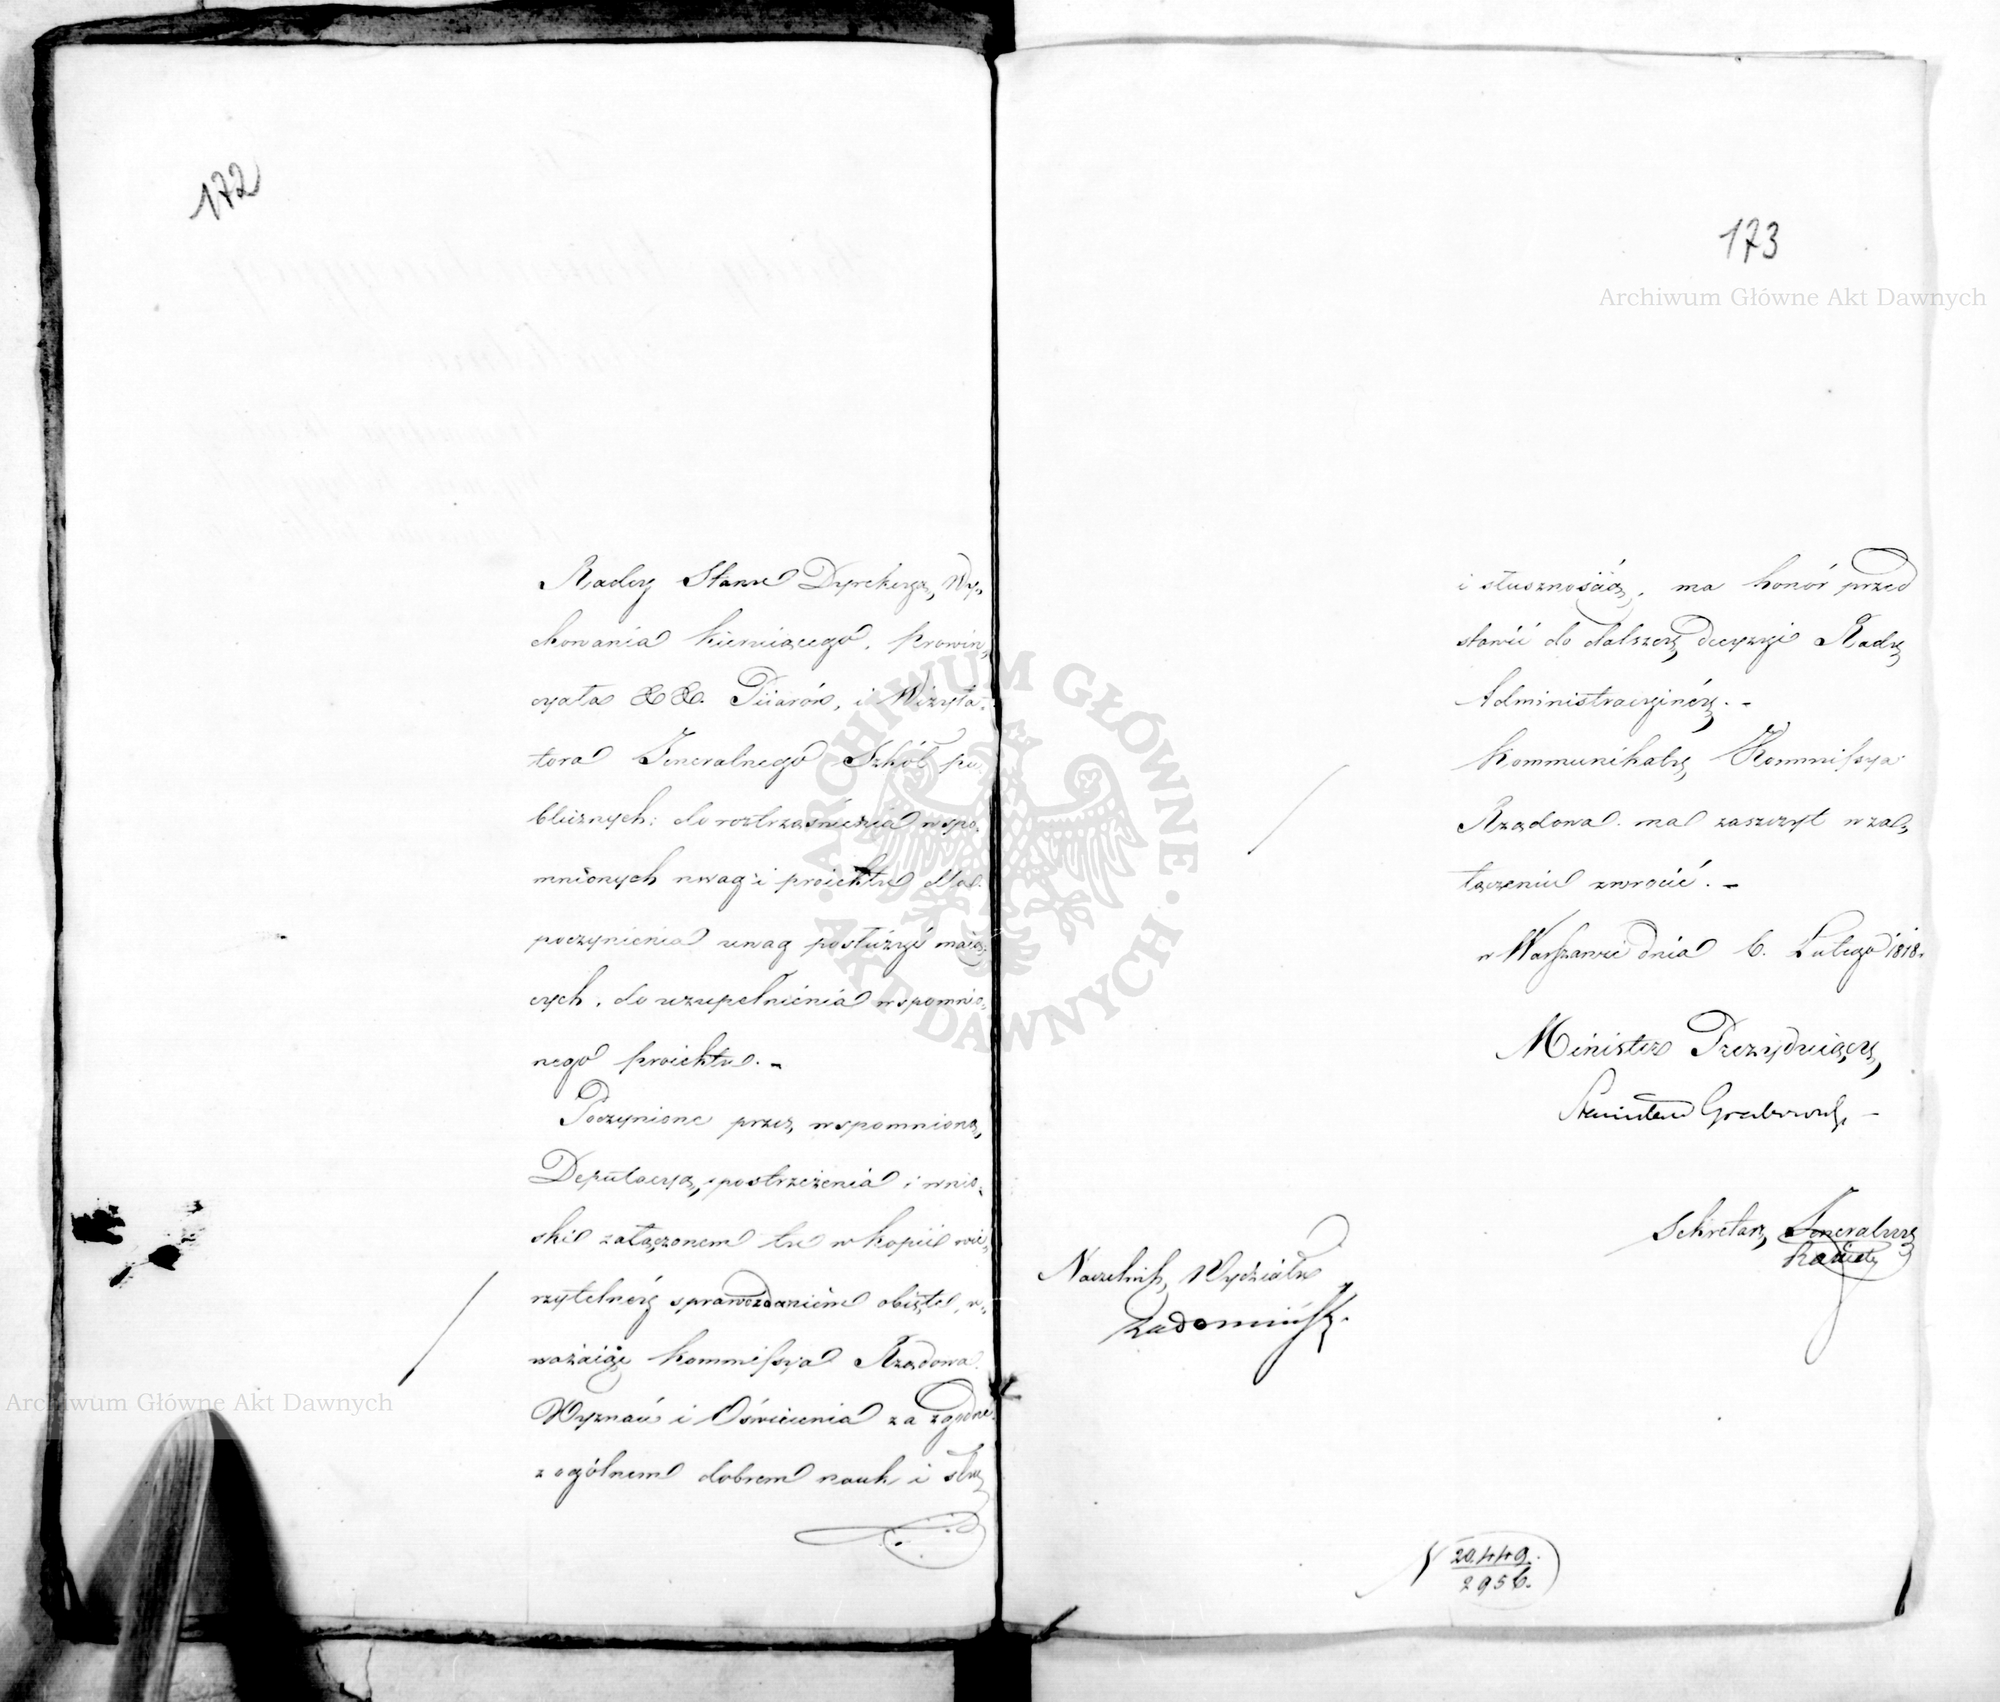 172
Radcy Stanu Dyrekcyą Wy-
chowania kieruiącego, Prowin-
cyała XX. Piiarów, i Wizyta-
tora Jeneralnego Szkół pu-
blicznych: do roztrząśnienia wspo-
mnionych uwag i proiektu dla
poczynienia uwag posłużyć maią-
cych, do uzupełnienia wspomnio-
nego proiektu. -
Poczynione przez wspomnioną
Deputacyą, spostrzeżenia i wnio-
ski załączonem tu w kopii wie-
rzytelnéy sprawozdaniem obięte, u-
ważaiąc Kommissya Rządowa
Wyznań i Oświecenia za zgodne
z ogólnem dobrem nauk i
173
Archiwum Główne Akt Dawnych
i słusznością, ma honor przed
stawić do dalszéy decyzyi Rady
Administracyinéy. -
Kommunikaty Kommissya
Rządowa ma zaszczyt w za-
łączeniu zwrócić. -
w Warszawie dnia 6. Lutego 1818.
Minister Prezyduiący
Stanisław Grabowski -
Sekretarz Jeneralny
Naczelnik Wydziału
N 20,449.
2956.
ARCHIWUM GŁÓWNE
AKT DAWNYCH
Archiwum Główne Akt Dawnych